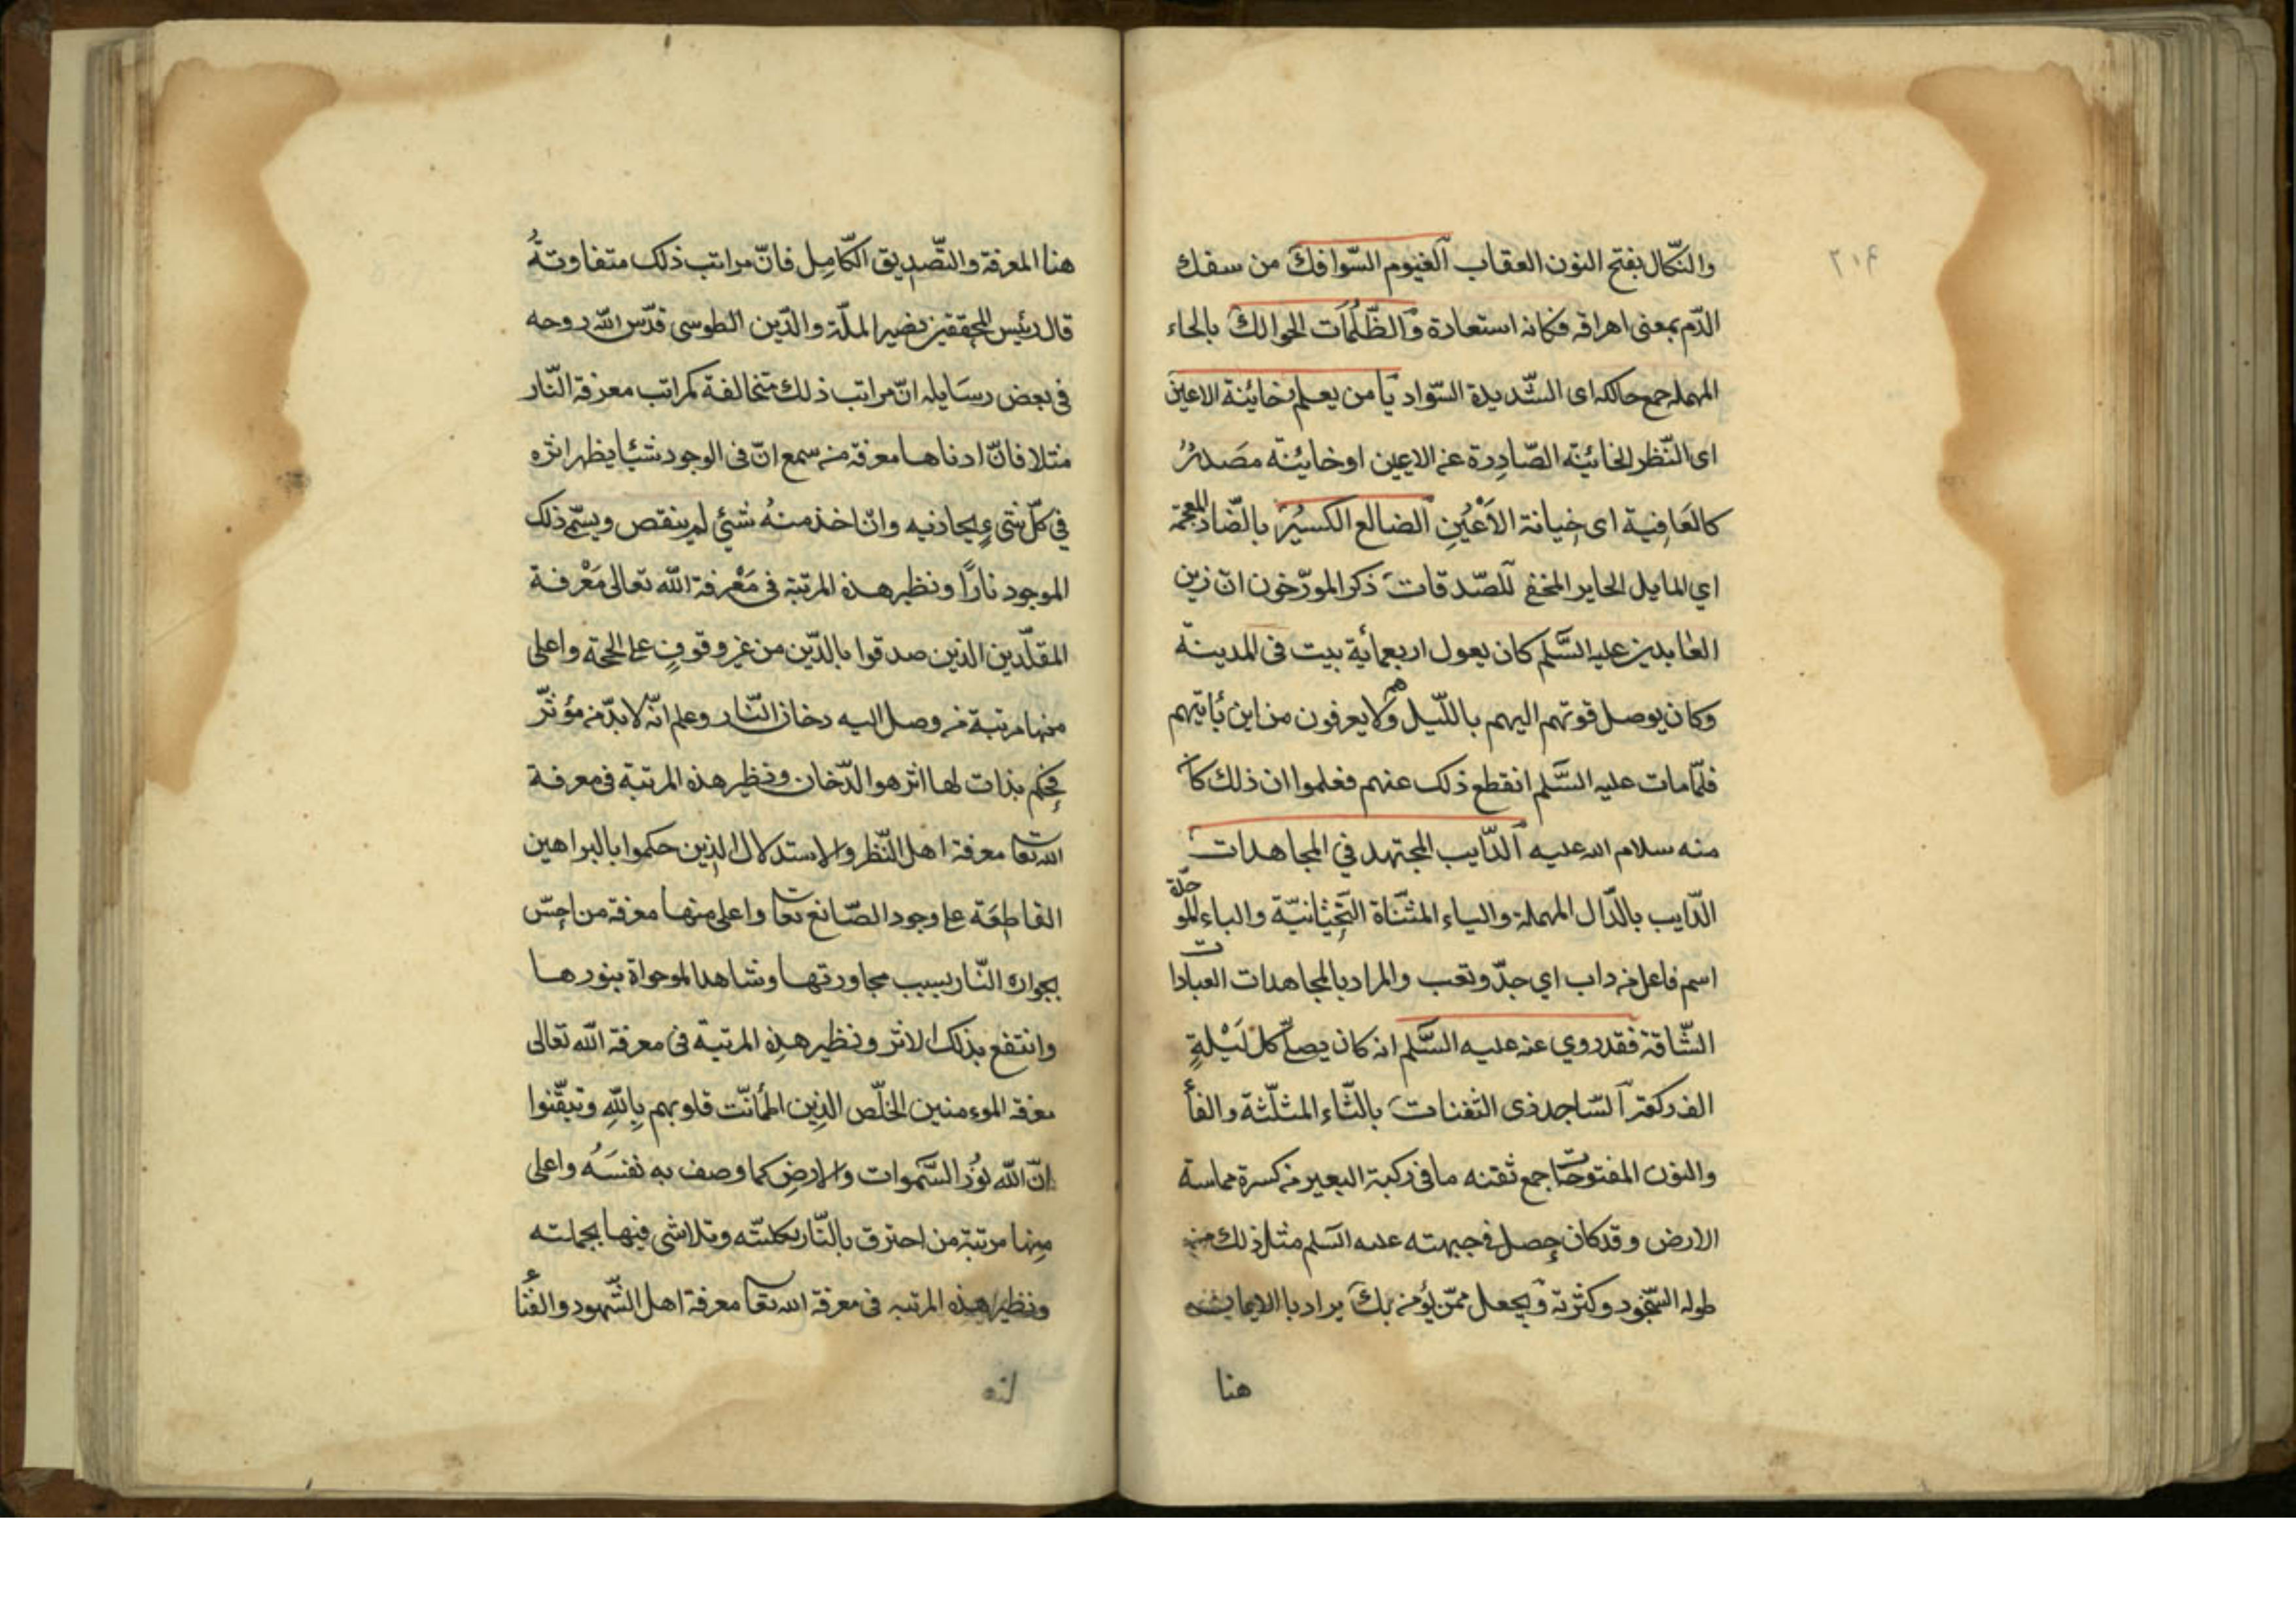 ٢١۴
والنّكال بفتح النون العقاب الغيوم السّوافك من سفك
الدّم بمعنى اهراقه فكانه استعارة والظّلمات الحوالك بالحاء
المهمله جمع حالكه اى الشّديدة السّواد يا من يعلم خاينة الاعين
اى النّظر الخائنة الصّادرة عن الاعين او خاينة مصَدرٌ
كالعَافِية اى خِيانة الاَعْيُنِ الضالع الكسيْر بالضّاد المعجمة
اي المايل الحاير المخفى للصّدقات ذكر المورّخون انّ زين
العٰابدين عليه السَّلم كان يعول اربعمأية بيت فى المدينة
وكان يوصل قوتهم اليهم باللّيل وهم لا يعرفون من اين ئاتيهم
فلمّا مات عليه السَّلم انقطع ذلك عنهم فعلموا ان ذلك كان
منه سلام الله عليه الدّايب المجتهد في المجاهدات
الدّايب بالدّال المهملة والياء المثنّاة التّحتانيّة والباء الموحّدة
اسم فاعل من داب اي جدّ وتعب والمراد بالمجاهدات العبادات
الشّاقة فقد روي عنه عليه السَّلم انه كان يصلّى كلّ لَيْلةٍ
الف ركعة السّاجد ذى الثفنات بالثّاء المثلّثة والفأ
والنون المفتوحات جمع ثفنه ما فى ركبة البعير من كسرة مماسة
الارض وقد كان حصل فى جبهته عليه السّلم مثل ذلك من
طوله السّجود وكثرته ويجعل ممّن يؤمن بك يراد بالايمان
هنا
هنا المعرفة والتّصديق الكّامِل فانّ مراتب ذلك متفاوتةٌ
قال رئيس المحققين نصير الملّة والدّين الطوسى قدّس الله روحه
فى بعض رسَايله انّ مراتب ذلك متخالفة كمراتب معرفة النّار
مثلا فانّ ادناها معرفة من سمع انّ فى الوجود شيئا يظهر اثره
في كلّ شئ يحاذيه وان اخذ منهُ شئي لم ينقص ويسمّى ذلك
الموجود نارًا ونظير هذه المرتبة فى مَعْرفة الله تعالى مَعْرفة
المقلّدين الذين صدقوا بالدّين من غير وقوفٍ على الحجّة واعلى
منها مرتبة من وصل اليه دخان النّار وعلم انّه لا بدّ من مؤثّر
فحكم بذات لها اثر هو الدّخان ونظير هذه المرتبة فى معرفة
الله تعا معرفة اهل النّظر والاستدلال الذين حكموا بالبراهين
القاطعَة على وجود الصّانع تعا واعلى منها معرفة من احسّ
بحرارة النّار بسبب مجاورتها وشاهد الموجوات بنورها
وانتفع بذلك الاثر ونظير هذِه المرتبة فى معرفة الله تعالى
معرفة الموءمنين الخلّص الذين اطمأنّت قلوبهم بِاللّهِ وتيقّنوا
انّ الله نوُر السَّموات والارضِ كما وصف به نفسَهُ واعلى
مِنها مرتبة من احترق بالنّار بكليّته وتلاشى فيها بجملته
ونظير هذه المرتبه فى معرفة الله تعا معرفة اهل الشّهود والفنٔا